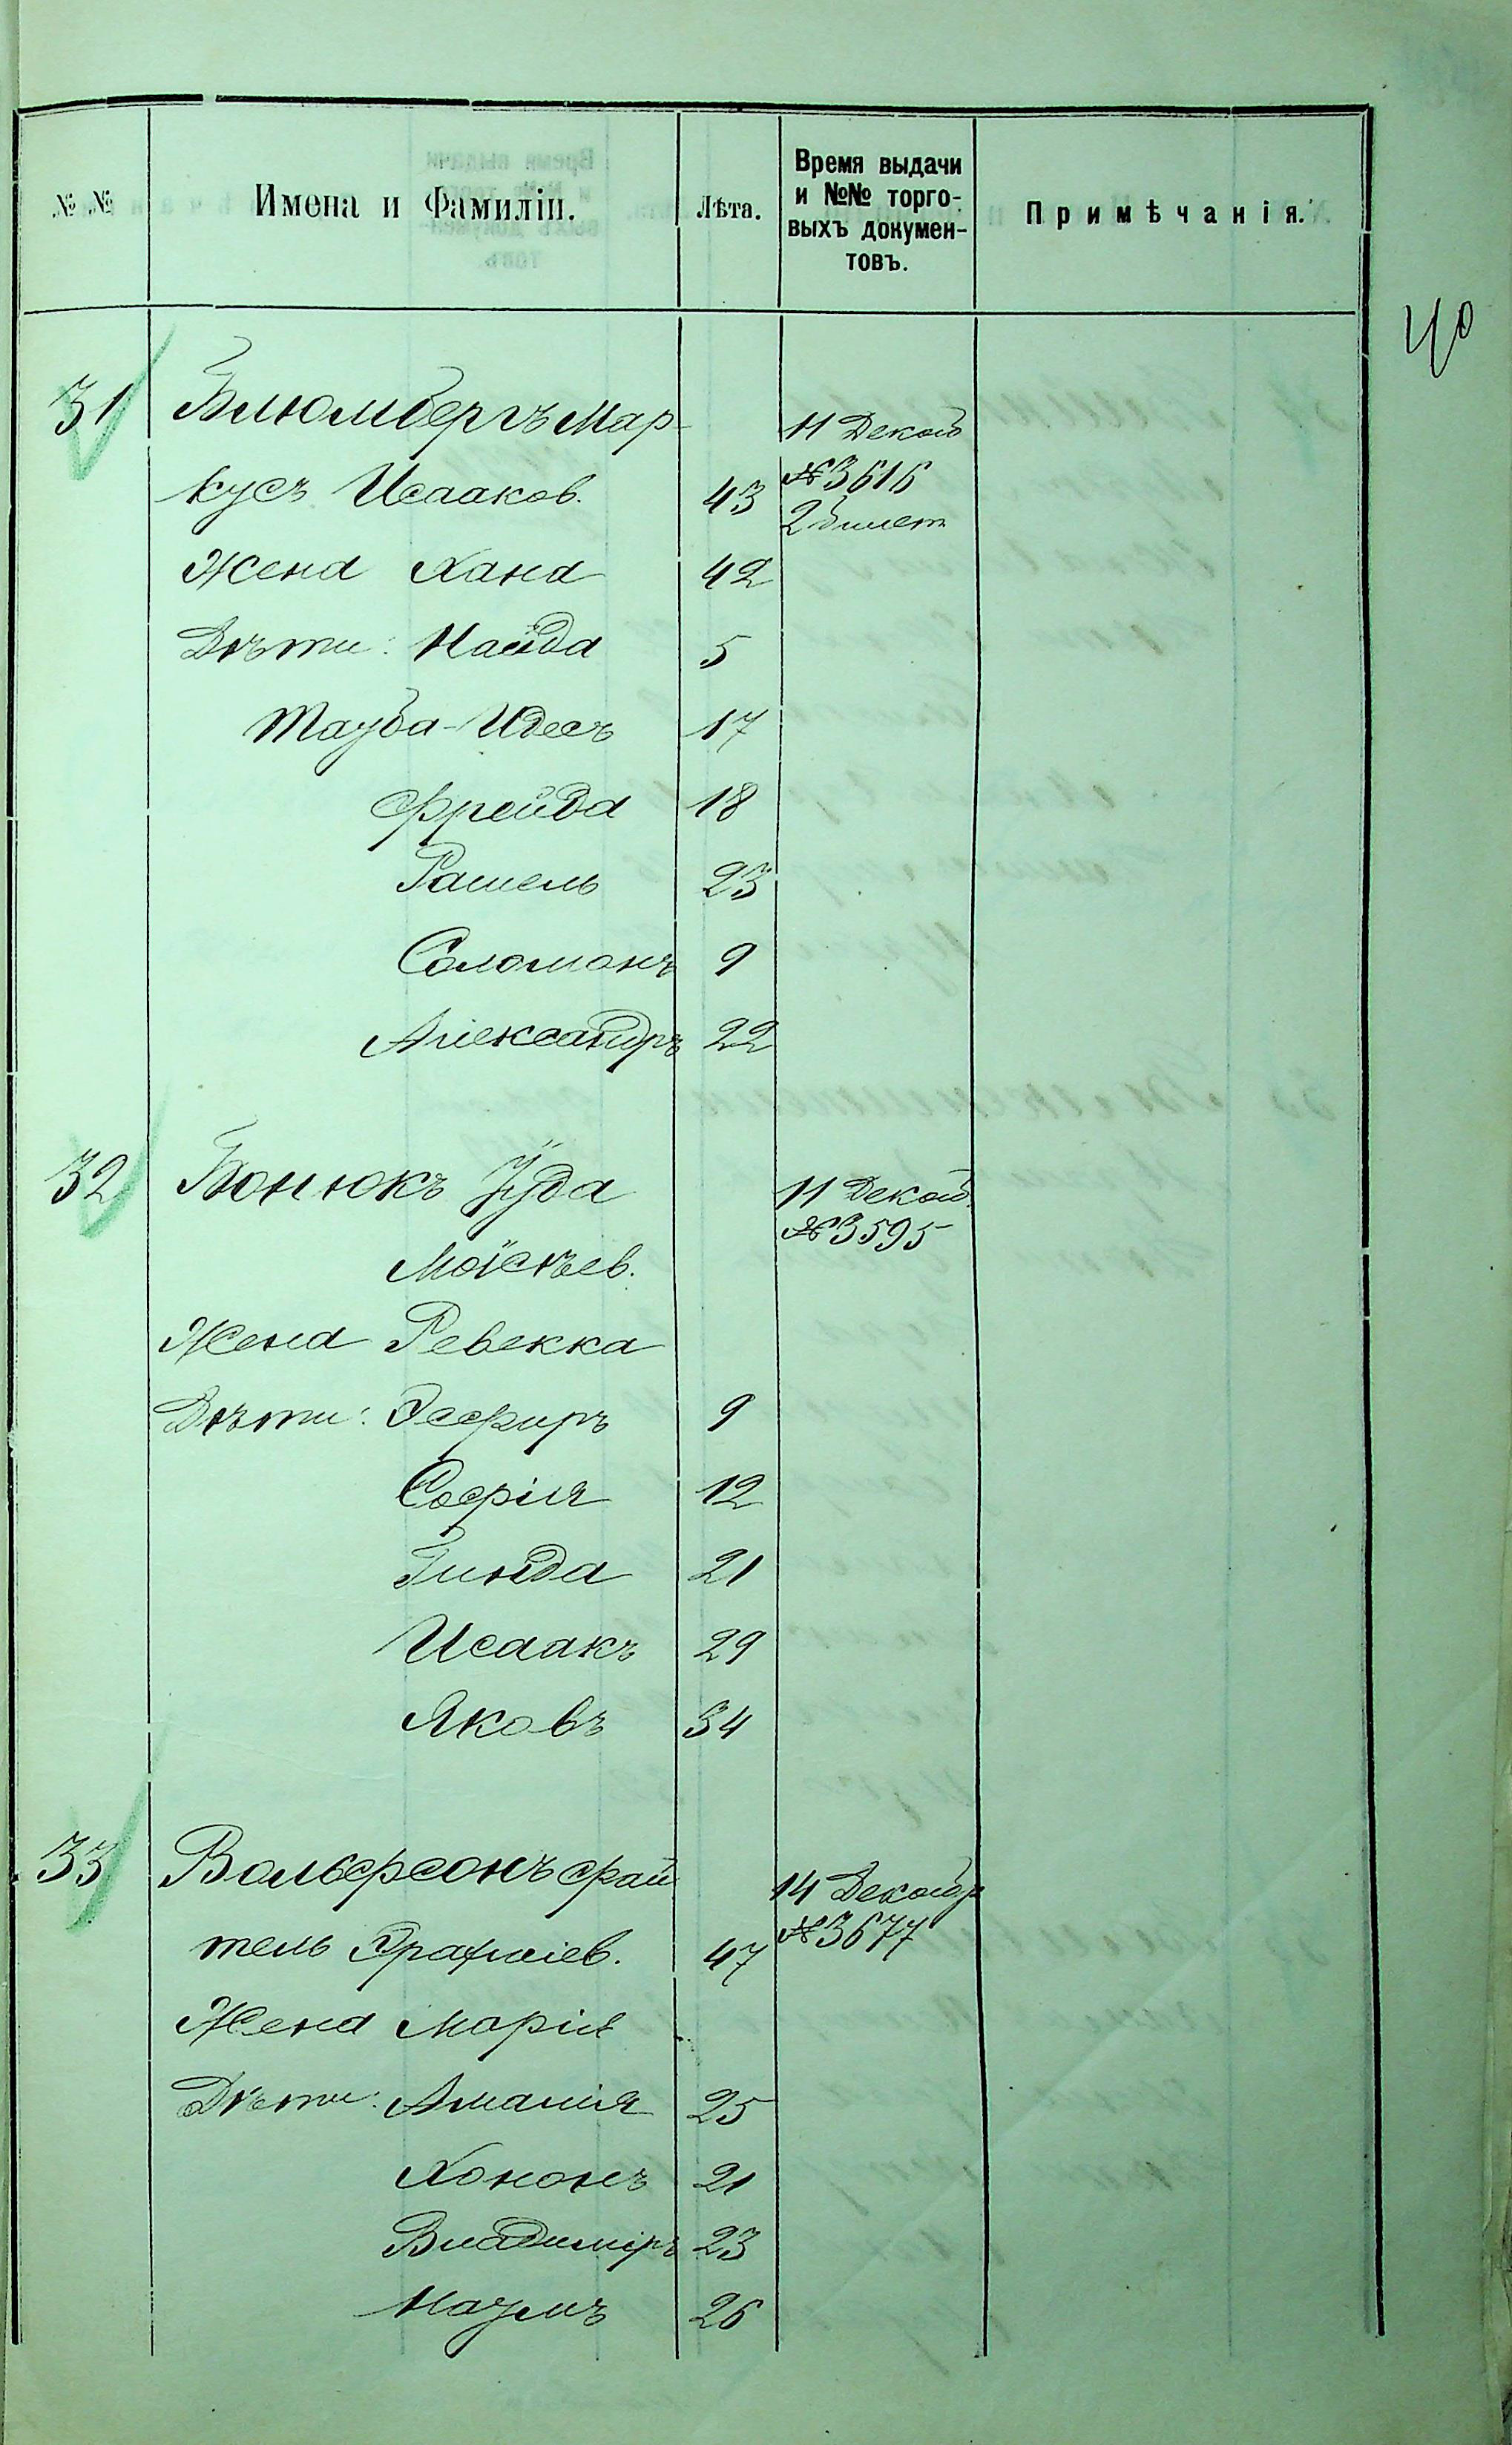 № №
Имена и Фамиліи.
Лѣта.
Время выдачи
и №№ торго-
выхъ докумен-
товъ.
Примѣчанія.
40
31 Блюмбергъ Мар-
11 Декаб
кусъ Исааков. 43 №3616
2 билет
Жена Хана 42
Дѣти: Наида 5
Тауба-Идесъ 17
Фрейда 18
Рашель 23
Соломонъ 9
Александръ 22
32 Бонюкъ Іуда 11 Декаб.
№3595
Моисѣев.
Жена Ревекка
Дѣти: Эсфирь 9
Софія 12
Гинда 21
Исаакъ 29
Яковъ 34
33 Вольфсонъ Фай 14 Декабр
тель 47 №3677
Жена Марія
Дѣти: Амалия 25
Хононъ 21
Владиміръ 23
Наумъ 26